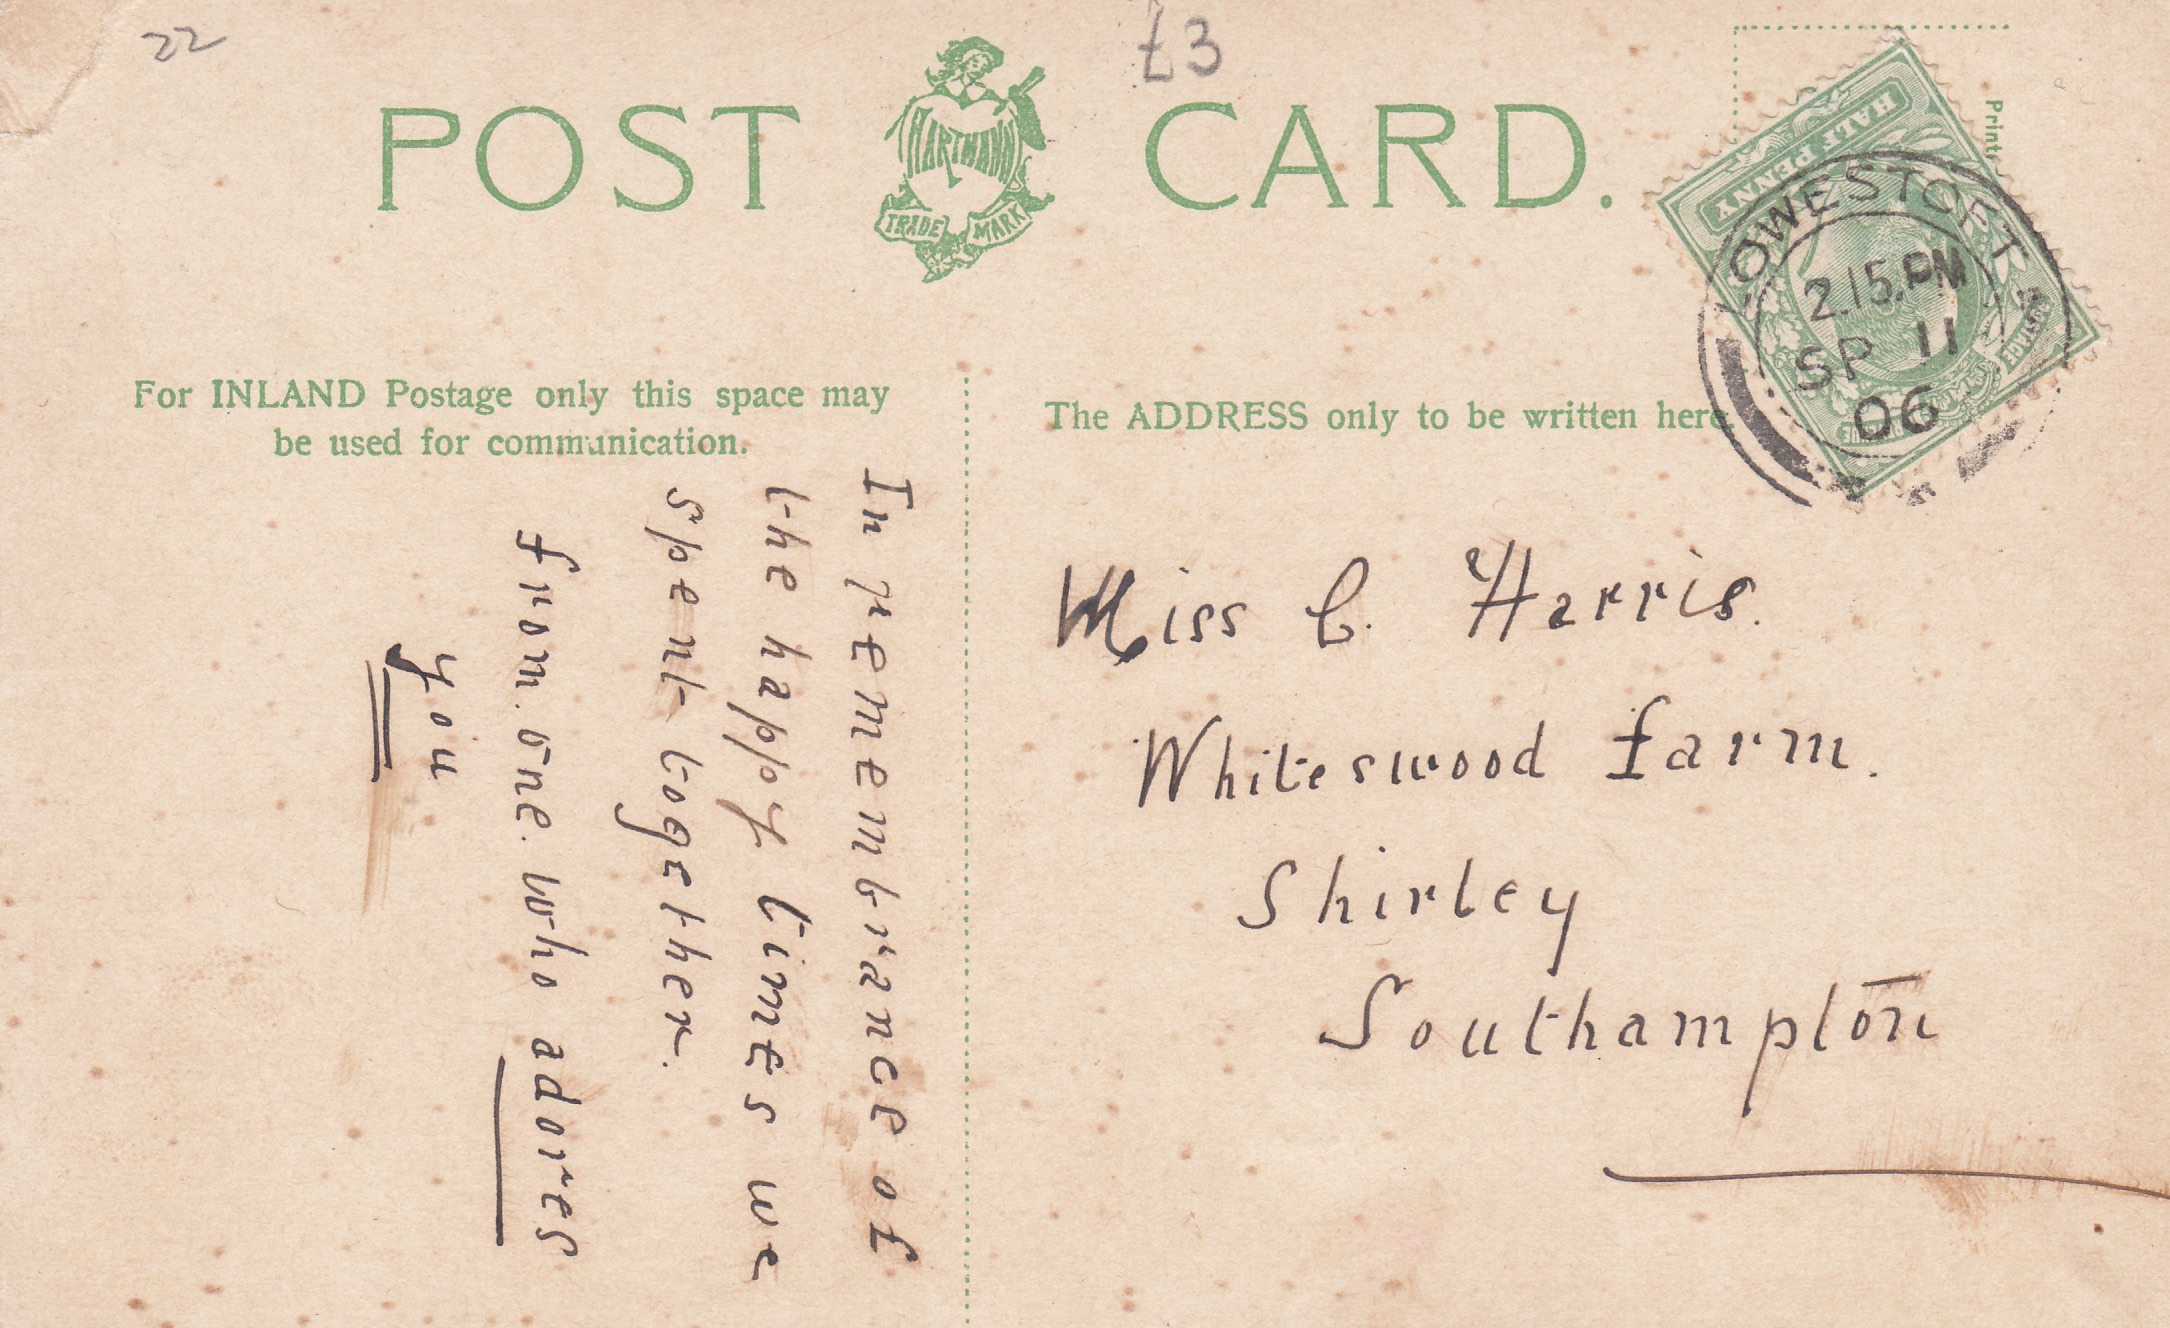 22
£3
POST CARD.
HARTMANN
TRADE MARK
HALF PENNY
POSTAGE
LOWESTOFT
2.15.PM
SP 11
06
For INLAND Postage only this space may
be used for communication.
The ADDRESS only to be written here.
In remembrance of
the happy times we
spent together.
from. one. who adores
you
Miss C. Harris.
Whiteswood farm.
Shirley
Southampton